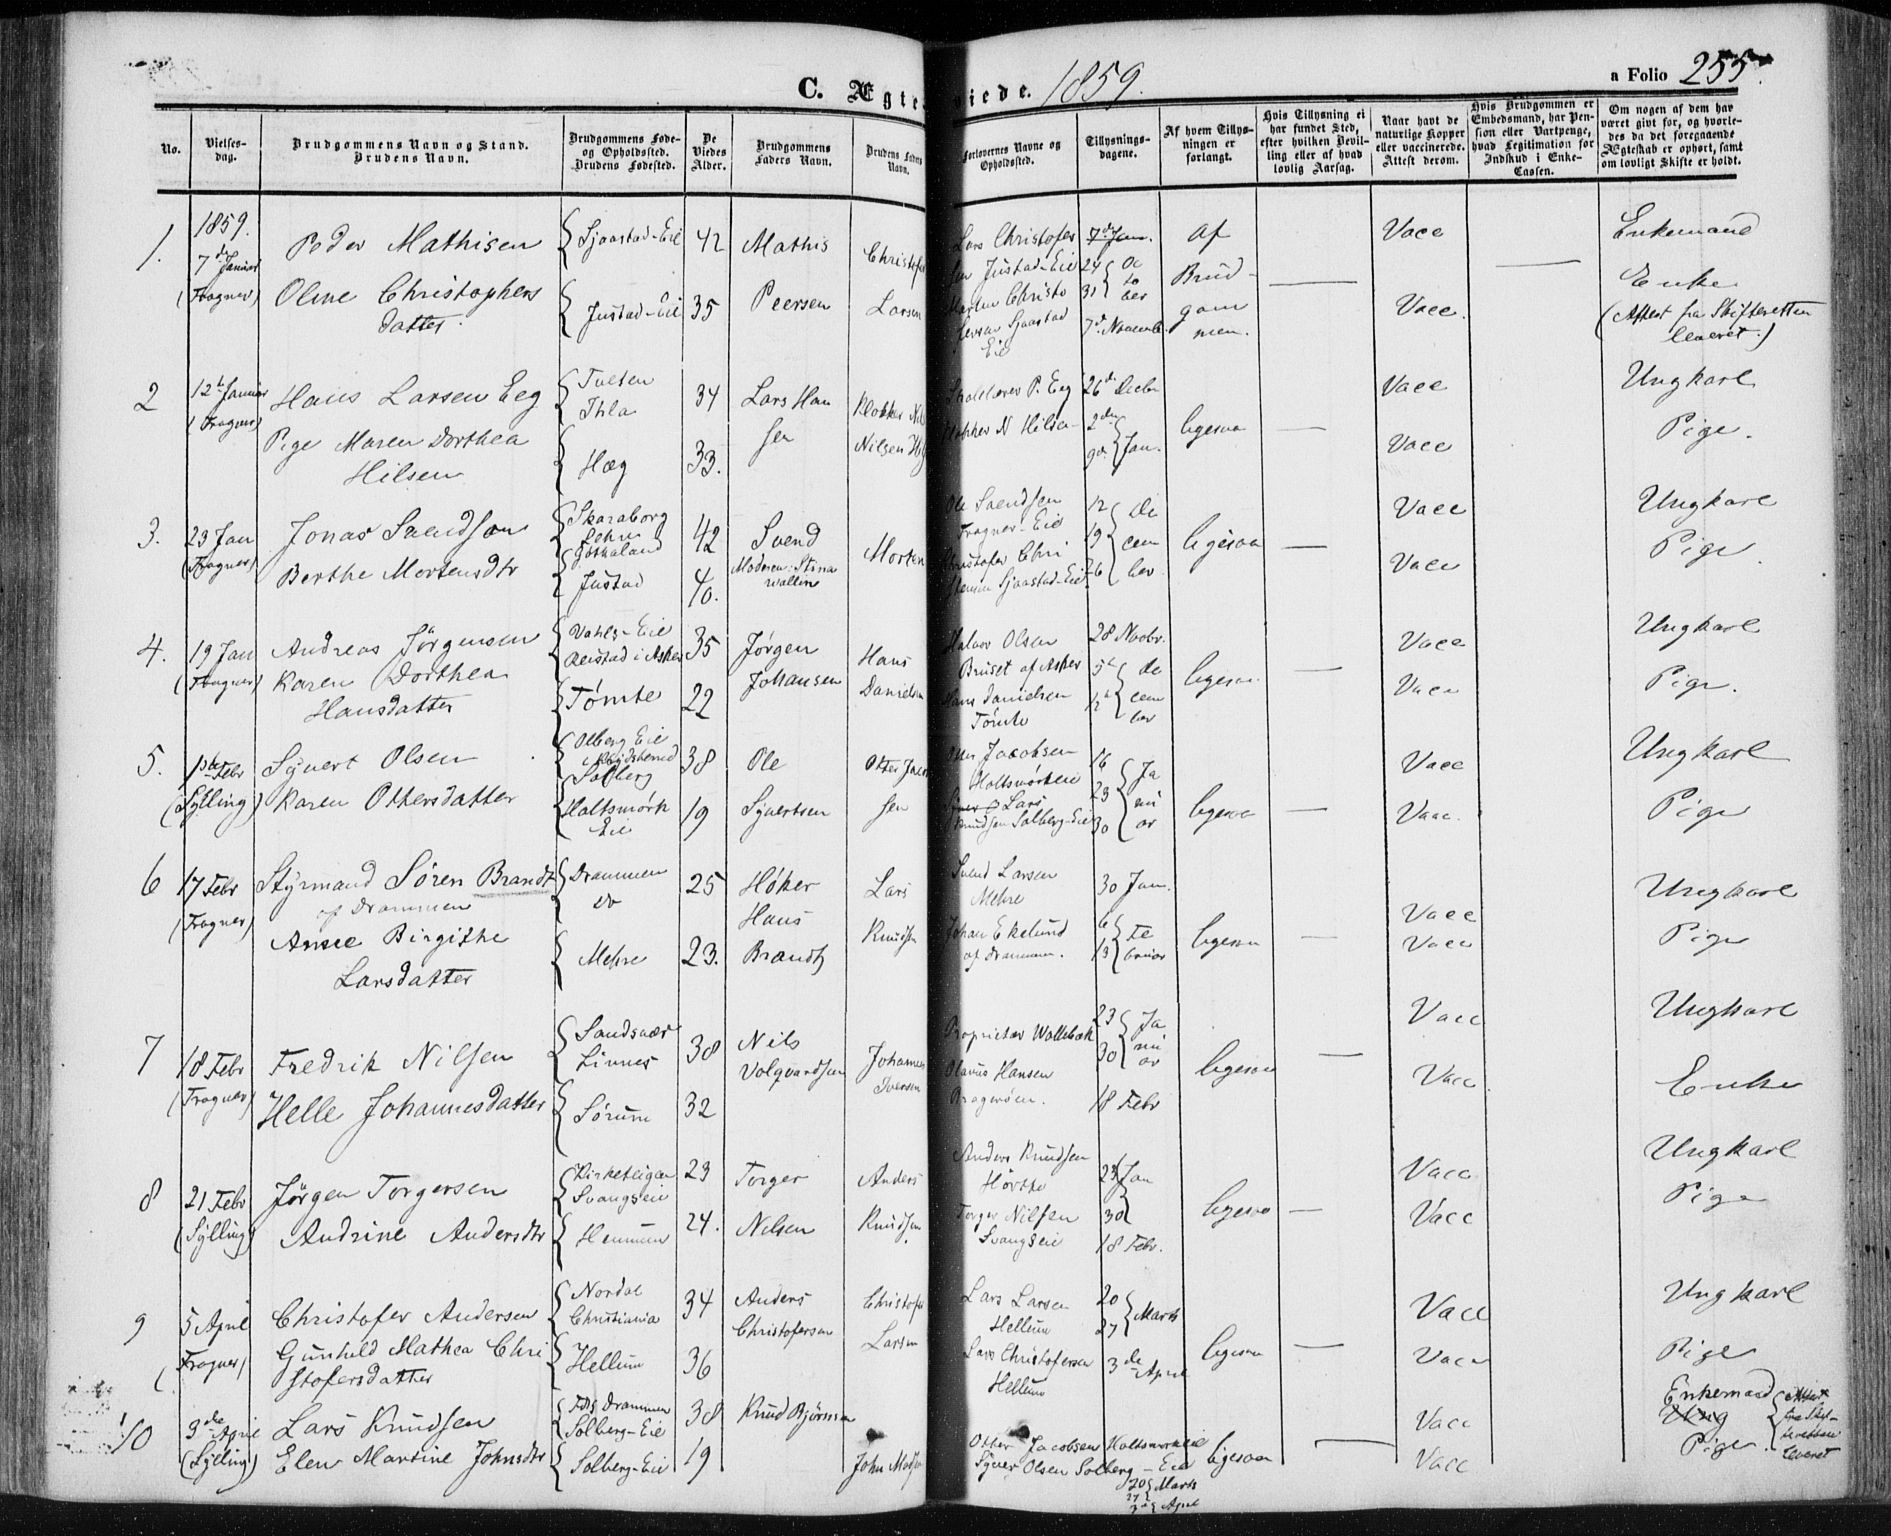 C. Ægteviede. 1859.
a Folio 255.
No.
Vielses-dag.
Brudgommens Navn og Stand. Brudens Navn.
Brudgommens Føde- og Opholdssted. Brudens Fødested.
De Viedes Alder.
Brudgommens Faders Navn.
Brudens Faders Navn.
Forlovernes Navne og Opholdssted.
Tillysnings-dagene.
Af hvem Tillys-ningen er forlangt.
Hvis Tillysning ei har fundet Sted, efter hvilken Bevil-ling eller af hvad lovlig Aarsag.
Naar havt de naturlige Kopper eller vaccinerede. Attest derom.
Hvis Brudgommen er Embedsmand, har Pen-sion eller Vartpenge, hvad Legitimation for Indskud i Enke-Cassen.
Om nogen af dem har været givt for, og hvorle-des da det foregaaende Ægteskab er ophørt, samt om lovligt Skifte er holdt.
1. 1859. 7de Januar (Fragner) Peder Mathisen Sjaastad-Eie 42 Mathis Peersen Lars Christofer Justad-Eie 24 31 October 7de Novemb. af Brudgommen. Vacc Enkemand
Oline Christophersdatter Justad-Eie 35 Christofer Larsen Sjaastad Eie Vacc. Enke (Attest fra Skifteretten leveret.)
2 12te Januar (Fragner) Hans Larsen Eeg 34 Lars Hansen P. Eeg 26de Decbr ligesaa Vacc Ungkarl
Pige Maren Dorthea Hilsen Hæg 33. Klokker Nilsen Klokker N Hilsen 2den 9de Jan. Vacc Pige.
3. 23 Jan (Fragner) Jonas Svendsen Skaraborg Lehn Gøthaland 42 Svend Moderen: Stina Wallin Ole Svendsen Fragner-Eie 12 19 26 December ligesaa Vacc Ungkarl
Berthe Mortensdtr Justad 40. Morten Christofer Christensen Sjaastad-Eie Vacc Pige.
4. 19 Jan (Fragner) Andreas Jørgensen Vahls-Eie Reistad i Asker 35 Jørgen Johansen Halvor Olsen Bruset af Asker 28 Novbr. 5te 12te December ligesaa Vacc Ungkarl
Karen Dorthea Hansdatter Tømte 22 Hans Danielsen Hans Danielsen Tømte Vacc Pige.
5. 1ste Febr (Sylling) Syvert Olsen Olberg Eie i Krydsherred Solberg 38 Ole Syvertsen Otter Jacobsen Holtsmarkeie 16 23 30 Januar ligesaa Vacc Ungkarl
Karen Ottersdatter Holtsmark Eie 19 Otter Jacobsen Lars Knudsen Solberg-Eie Vacc. Pige
6 17 Febr (Fragner) Styrmand Søren Brandt af Drammen Drammen do 25 Høker Hans Brandt Svend Larsen Mehre 30 Jan. ligesaa Vacc Ungkarl
Anne Birgithe Larsdatter Mehre 23. Lars Knudsen Johan Ekelund af Drammen. 6 13 Februar Vacc Pige
7 18 Febr (Fragner) Fredrik Nilsen Sandsvær Linnes 38 Nils Volqvardsen Proprietær Wallebæk 23 30 Januar ligesaa Vacc Ungkarl
Helle Johannesdatter Sørum 32 Johannes Iversen Olavus Hansen Bragerøen. 18 Febr Vacc Enke
8 21 Febr (Sylling) Jørgen Torgersen Svangseie 23 Torger Nilsen Anders Knudsen Høvtte 23 Jan 30 ligesaa Vacc Ungkarl
Andrine Andersdtr Hemmen 24. Anders Knudsen Torger Nilsen Svangseie 18 Febr. Vacc Pige
9 5 April (Fragner) Christofer Andersen Nordal Christiania 34 Anders Christofersen Lars Larsen Hellum 20 27 Marts ligesaa Vacc Ungkarl
Gunhild Mathea Christofersdatter Hellum 36 Christofer Larsen Lars Christofersen Hellum 3de April Vacc Pige
10 3de April (Sylling) Lars Knudsen Drammen Solberg-Eie 38 Knud Bjørnsen Otter Jacobsen Holtsmarkeie ligesaa Vacc Enkemand Attest fra Skifteretten leveret
Elen Martine Johnsdtr Solberg-Eie 19 John Syver Olsen Solberg-Eie 20 27 Marts 3de April Vacc Pige